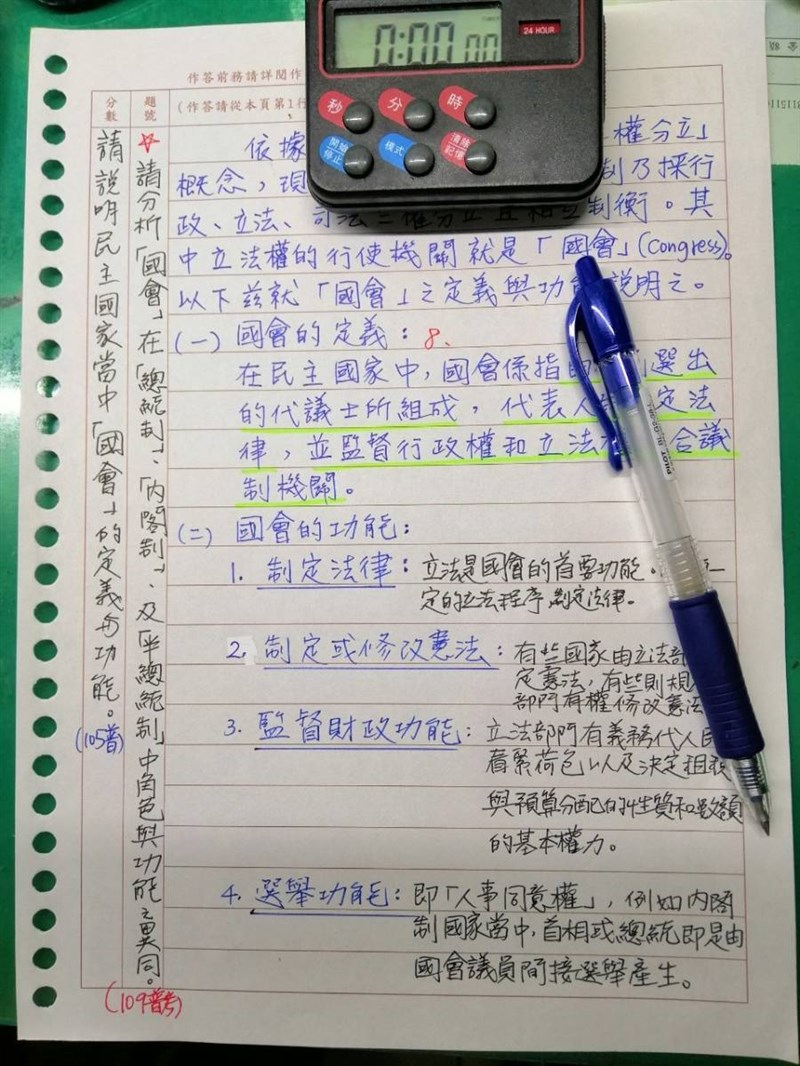 0:00 00
24 HOUR
秒 分 時
開始 停止 模式 清除 記憶
作答前務請詳閱作
分數
題號
(作答請從本頁第1行
請說明民主國家當中「國會」的定義與功能。(105普)
☆請分析「國會」在「總統制」、「內閣制」、及「半總統制」中角色與功能之異同。(109普考)
依據 權分立」
概念，現 制乃採行
政、立法、司法三權分立且相互制衡。其
中立法權的行使機關就是「國會」(Congress)。
以下茲就「國會」之定義與功 說明之。
(一) 國會的定義： 8、
在民主國家中，國會係指 選出
的代議士所組成，代表人 定法
律，並監督行政權和立法 合議
制機關。
(二) 國會的功能：
1. 制定法律： 立法是國會的首要功能。
定的立法程序，制定法律。
2. 制定或修改憲法： 有些國家由立法部
定憲法，有些則規
部門有權修改憲法
3. 監督財政功能： 立法部門有義務代人民
看緊荷包以及決定租稅
與預算分配的性質和數額
的基本權力。
4. 選舉功能： 即「人事同意權」，例如內閣
制國家當中，首相或總統即是由
國會議員間接選舉產生。
PILOT